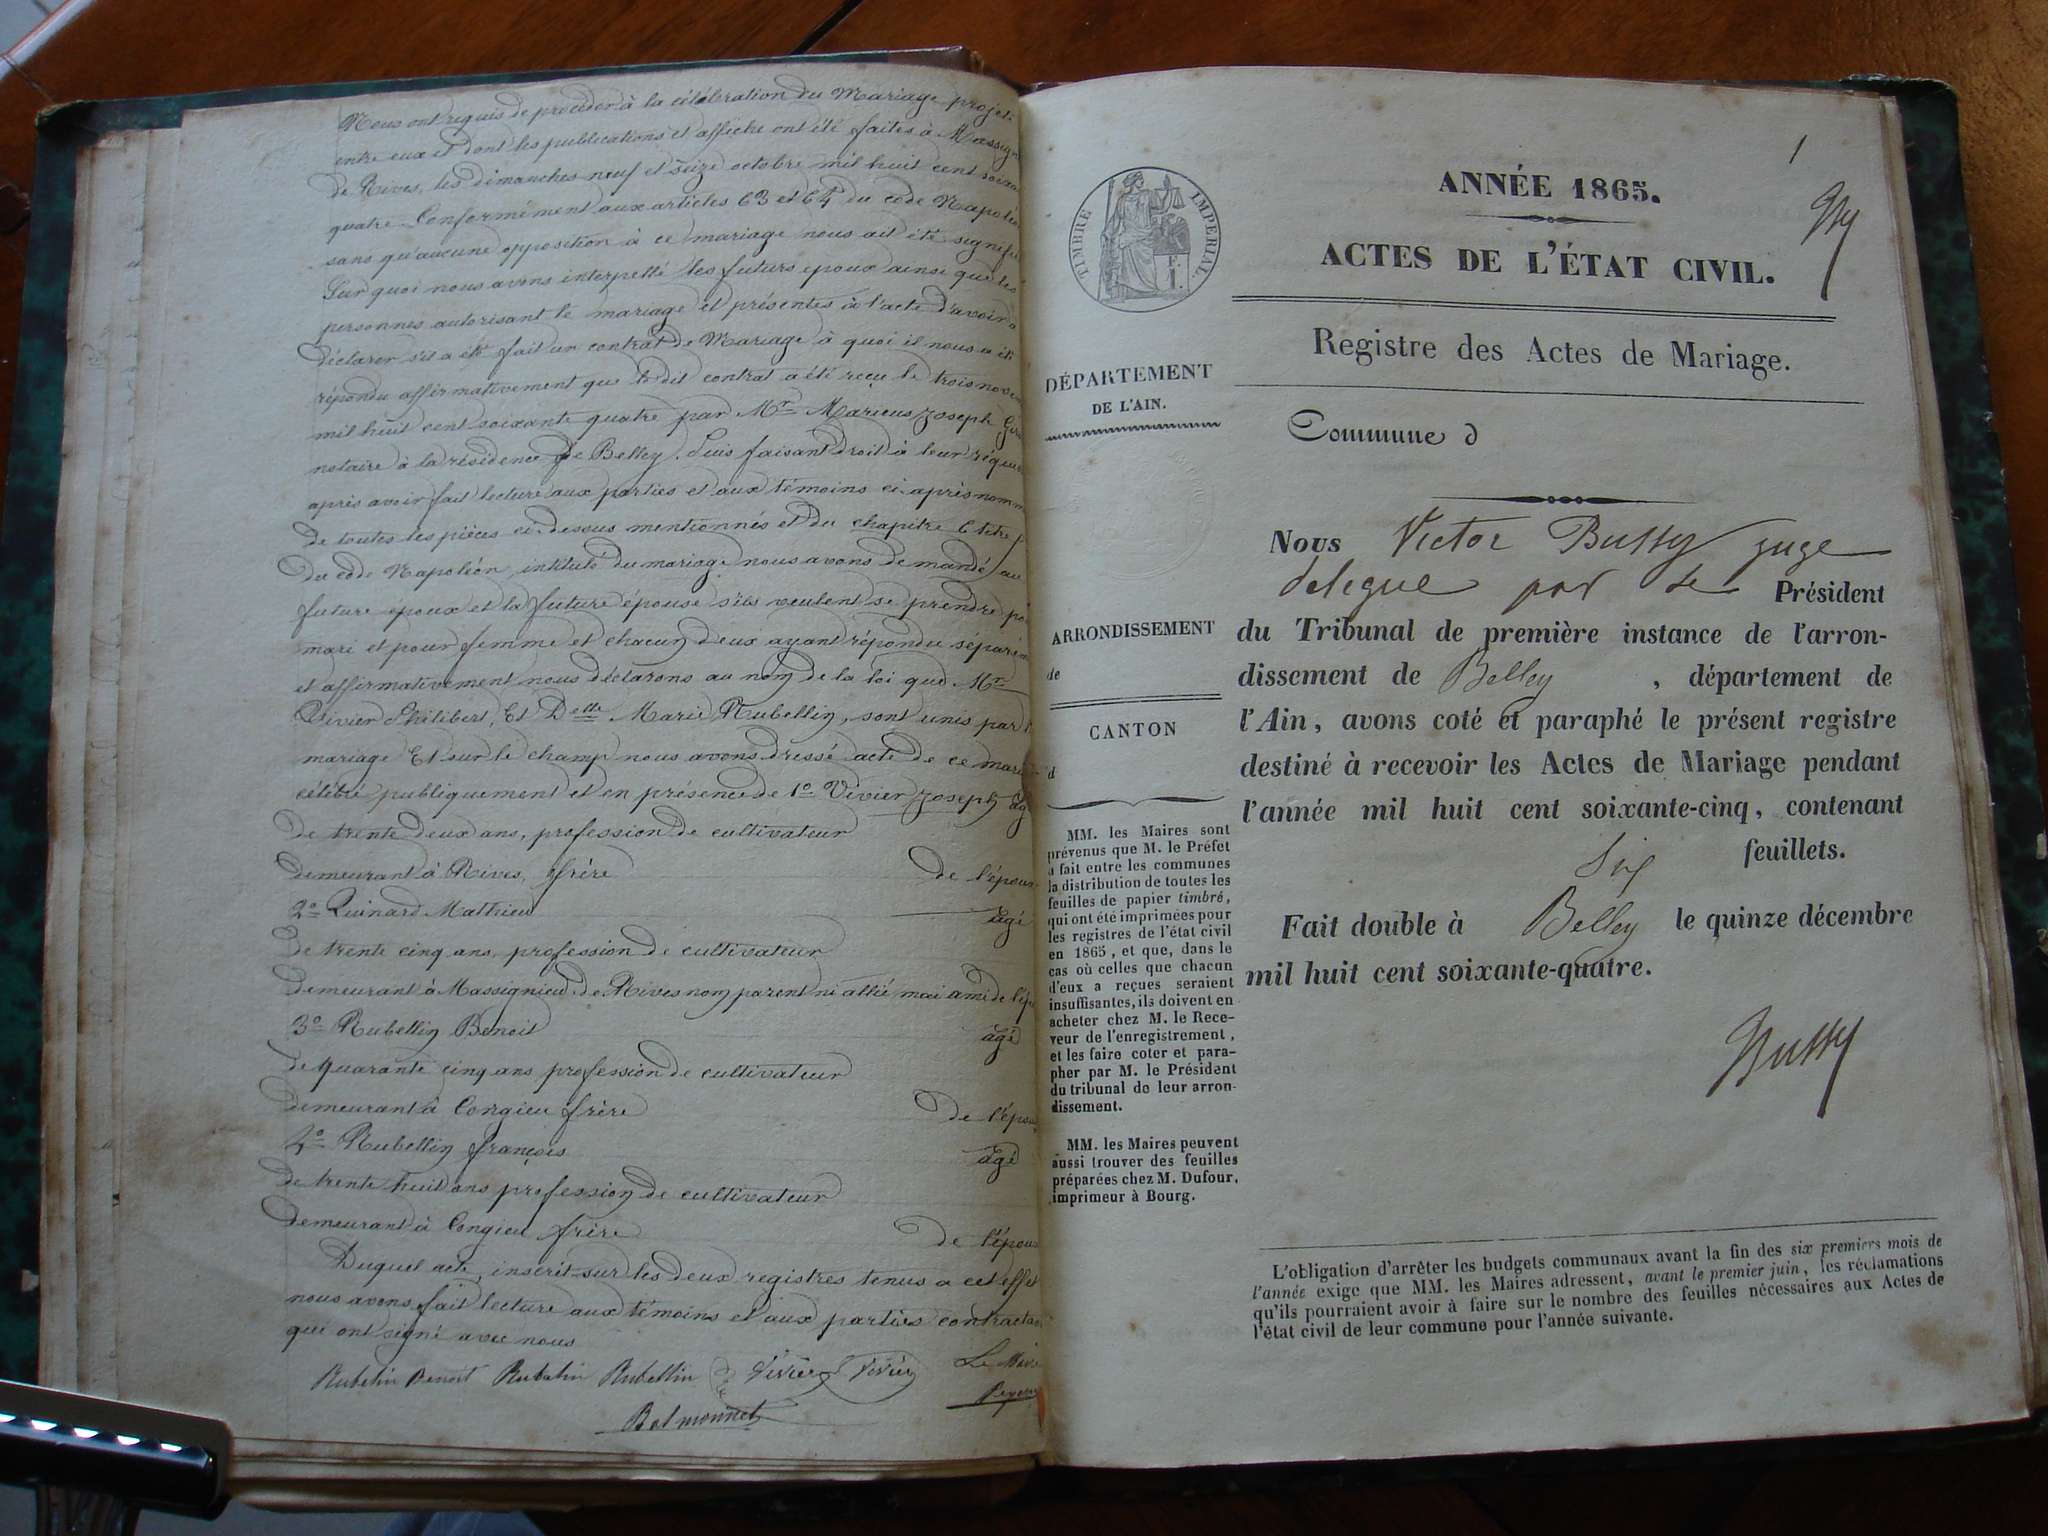 Nous ont requis de procéder à la célébration du Mariage projet
entre eux et dont les publications et affiche ont été faites à Massign
de Rives, les dimanches neuf et seize octobre mil huit cent soixa
quatre Conformément aux articles 63 et 64 du code Napoléo
sans qu'aucune opposition à ce mariage nous ait été signifi
Sur quoi nous avons interpellé les futurs epoux ainsi que les
personnes autorisant le mariage et présentes à l'acte d'avoir à
déclarer s'il a été fait un contrat de Mariage à quoi il nous a été
répondu affirmativement que le dit contrat a été reçu le trois nove
mil huit cent soixante quatre par Mr Marieus Joseph
notaire à la résidence de Belley. Puis faisant droit à leur réqui
après avoir fait lecture aux parties et aux témoins ci-après nomm
de toutes les pièces ci-dessus mentionnés et du chapitre 6 titre
du code Napoléon, intitulé du mariage nous avons demandé au
future époux et la future épouse s'ils veulent se prendre po
mari et pour femme et chacun d'eux ayant répondu séparém
et affirmativement nous déclarons au nom de la loi que Mr
Vivier Philibert, Et Delle Marie Rubellin, sont unis par l
mariage Et sur le champ nous avons dressé acte de ce mari
célébré publiquement et en présence de 1o Vivier Joseph âg
de trente deux ans, profession de cultivateur
demeurant à Rives, frère de l'épou
2o Quinard Mathieu âgé
de trente cinq ans, profession de cultivateur
demeurant à Massignieu de Rives non parent ni allié mai ami de l'ép
3o Rubellin Benoit âgé
de quarante cinq ans profession de cultivateur
demeurant à Congieu frère de l'épou
4o Rubellin françois âgé
de trente huit ans profession de cultivateur
demeurant à Congieu frère de l'épou
Duquel acte, inscrit sur les deux registres tenus a cet effet
nous avons fait lecture aux témoins et aux parties contracta
qui ont signé avec nous
Rubelin Benoit Rubelin Rubellin Vivier Vivier Le Mair
Belmonnet
1
ANNÉE 1865.
ACTES DE L'ÉTAT CIVIL.
Registre des Actes de Mariage.
Commune d
TIMBRE IMPERIAL
F.
1.
DÉPARTEMENT
DE L'AIN.
ARRONDISSEMENT
de
CANTON
d
MM. les Maires sont
prévenus que M. le Préfet
a fait entre les communes
la distribution de toutes les
feuilles de papier timbré,
qui ont été imprimées pour
les registres de l'état civil
en 1865, et que, dans le
cas où celles que chacun
d'eux a reçues seraient
insuffisantes, ils doivent en
acheter chez M. le Rece-
veur de l'enregistrement,
et les faire coter et para-
pher par M. le Président
du tribunal de leur arron-
dissement.
MM. les Maires peuvent
aussi trouver des feuilles
préparées chez M. Dufour,
imprimeur à Bourg.
Nous Victor Bussy juge
délégué par le Président
du Tribunal de première instance de l'arron-
dissement de Belley, département de
l'Ain, avons coté et paraphé le présent registre
destiné à recevoir les Actes de Mariage pendant
l'année mil huit cent soixante-cinq, contenant
Six feuillets.
Fait double à Belley le quinze décembre
mil huit cent soixante-quatre.
Bussy
L'obligation d'arrêter les budgets communaux avant la fin des six premiers mois de
l'année exige que MM. les Maires adressent, avant le premier juin, les réclamations
qu'ils pourraient avoir à faire sur le nombre des feuilles nécessaires aux Actes de
l'état civil de leur commune pour l'année suivante.